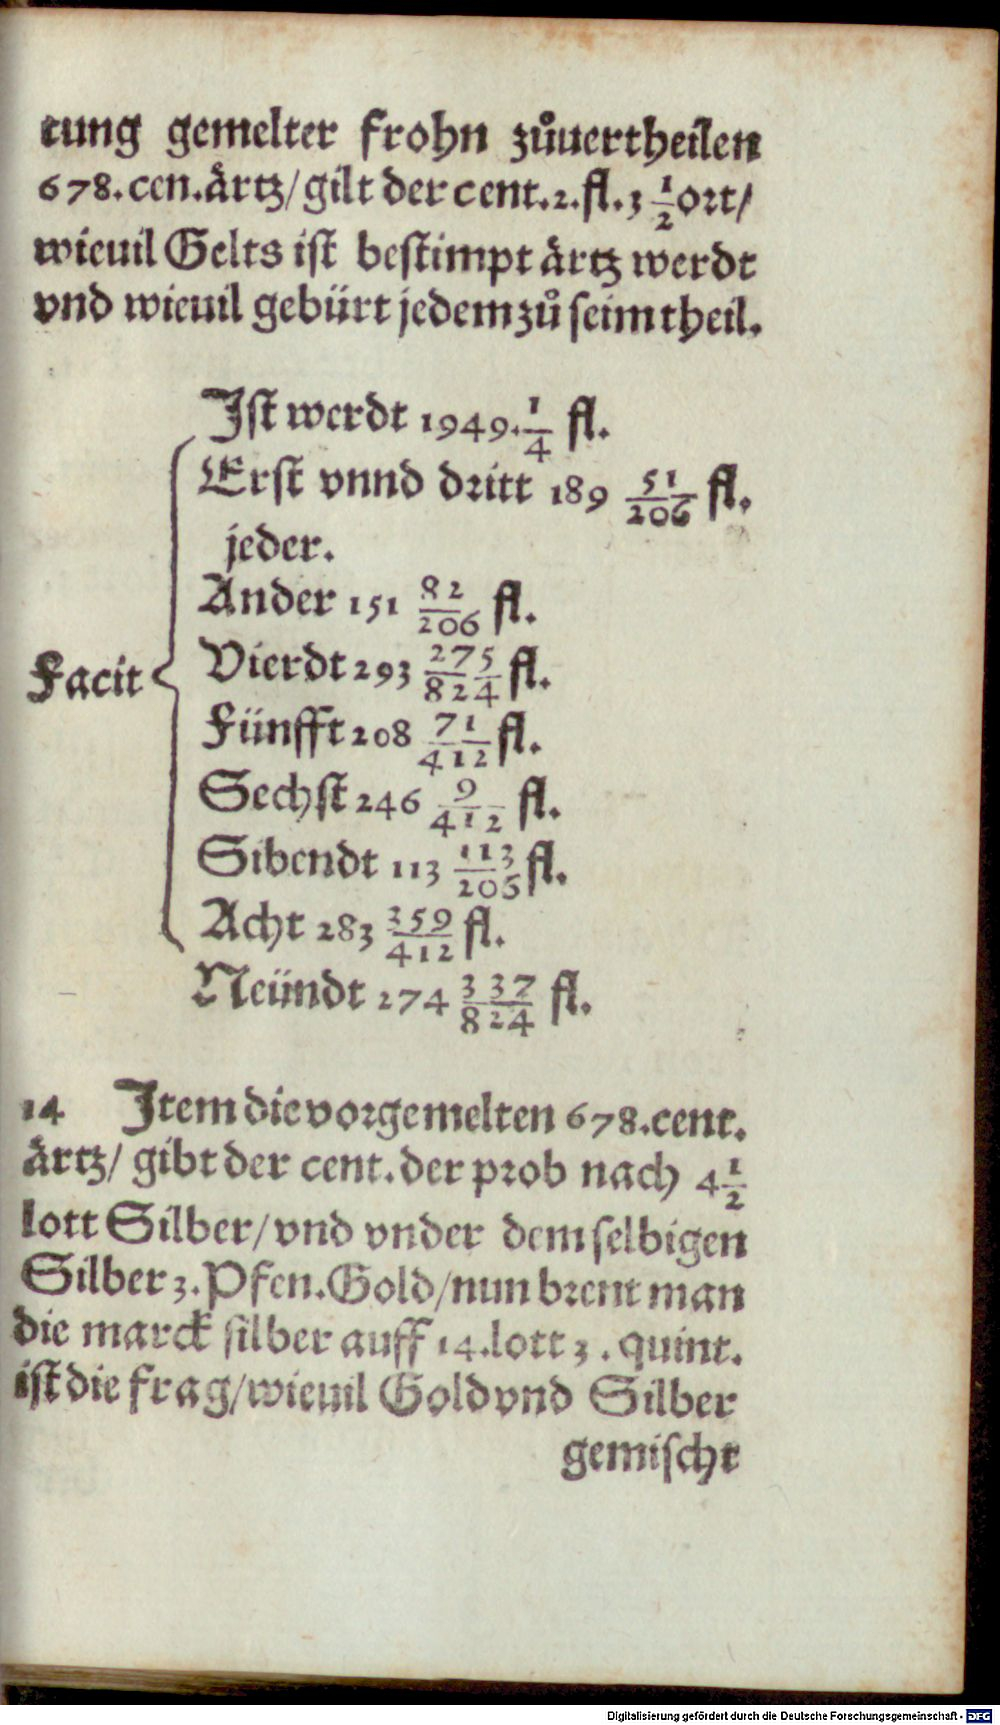 tung gemelter frohn zůuertheilen
678.cen.ärtz/gilt der cent.2.fl.3 1/2 ort/
wieuil Gelts ist bestimpt ärtz werdt
vnd wieuil gebürt jedem zů seim theil.
Ist werdt 1949. 1/4 fl.
Erst vnnd dritt 189 51/206 fl.
jeder.
Ander 151 82/206 fl.
Facit Vierdt 293 275/824 fl.
Fünfft 208 71/412 fl.
Sechst 246 9/412 fl.
Sibendt 113 113/206 fl.
Acht 283 359/412 fl.
Neündt 274 337/824 fl.
14 Item die vorgemelten 678.cent.
ärtz/ gibt der cent.der prob nach 4 1/2
lott Silber/vnd vnder dem selbigen
Silber 3.Pfen.Gold/nun brent man
die marck silber auff 14.lott 3. quint.
ist die frag/wieuil Gold vnd Silber
gemischt
Digitalisierung gefördert durch die Deutsche Forschungsgemeinschaft - DFG